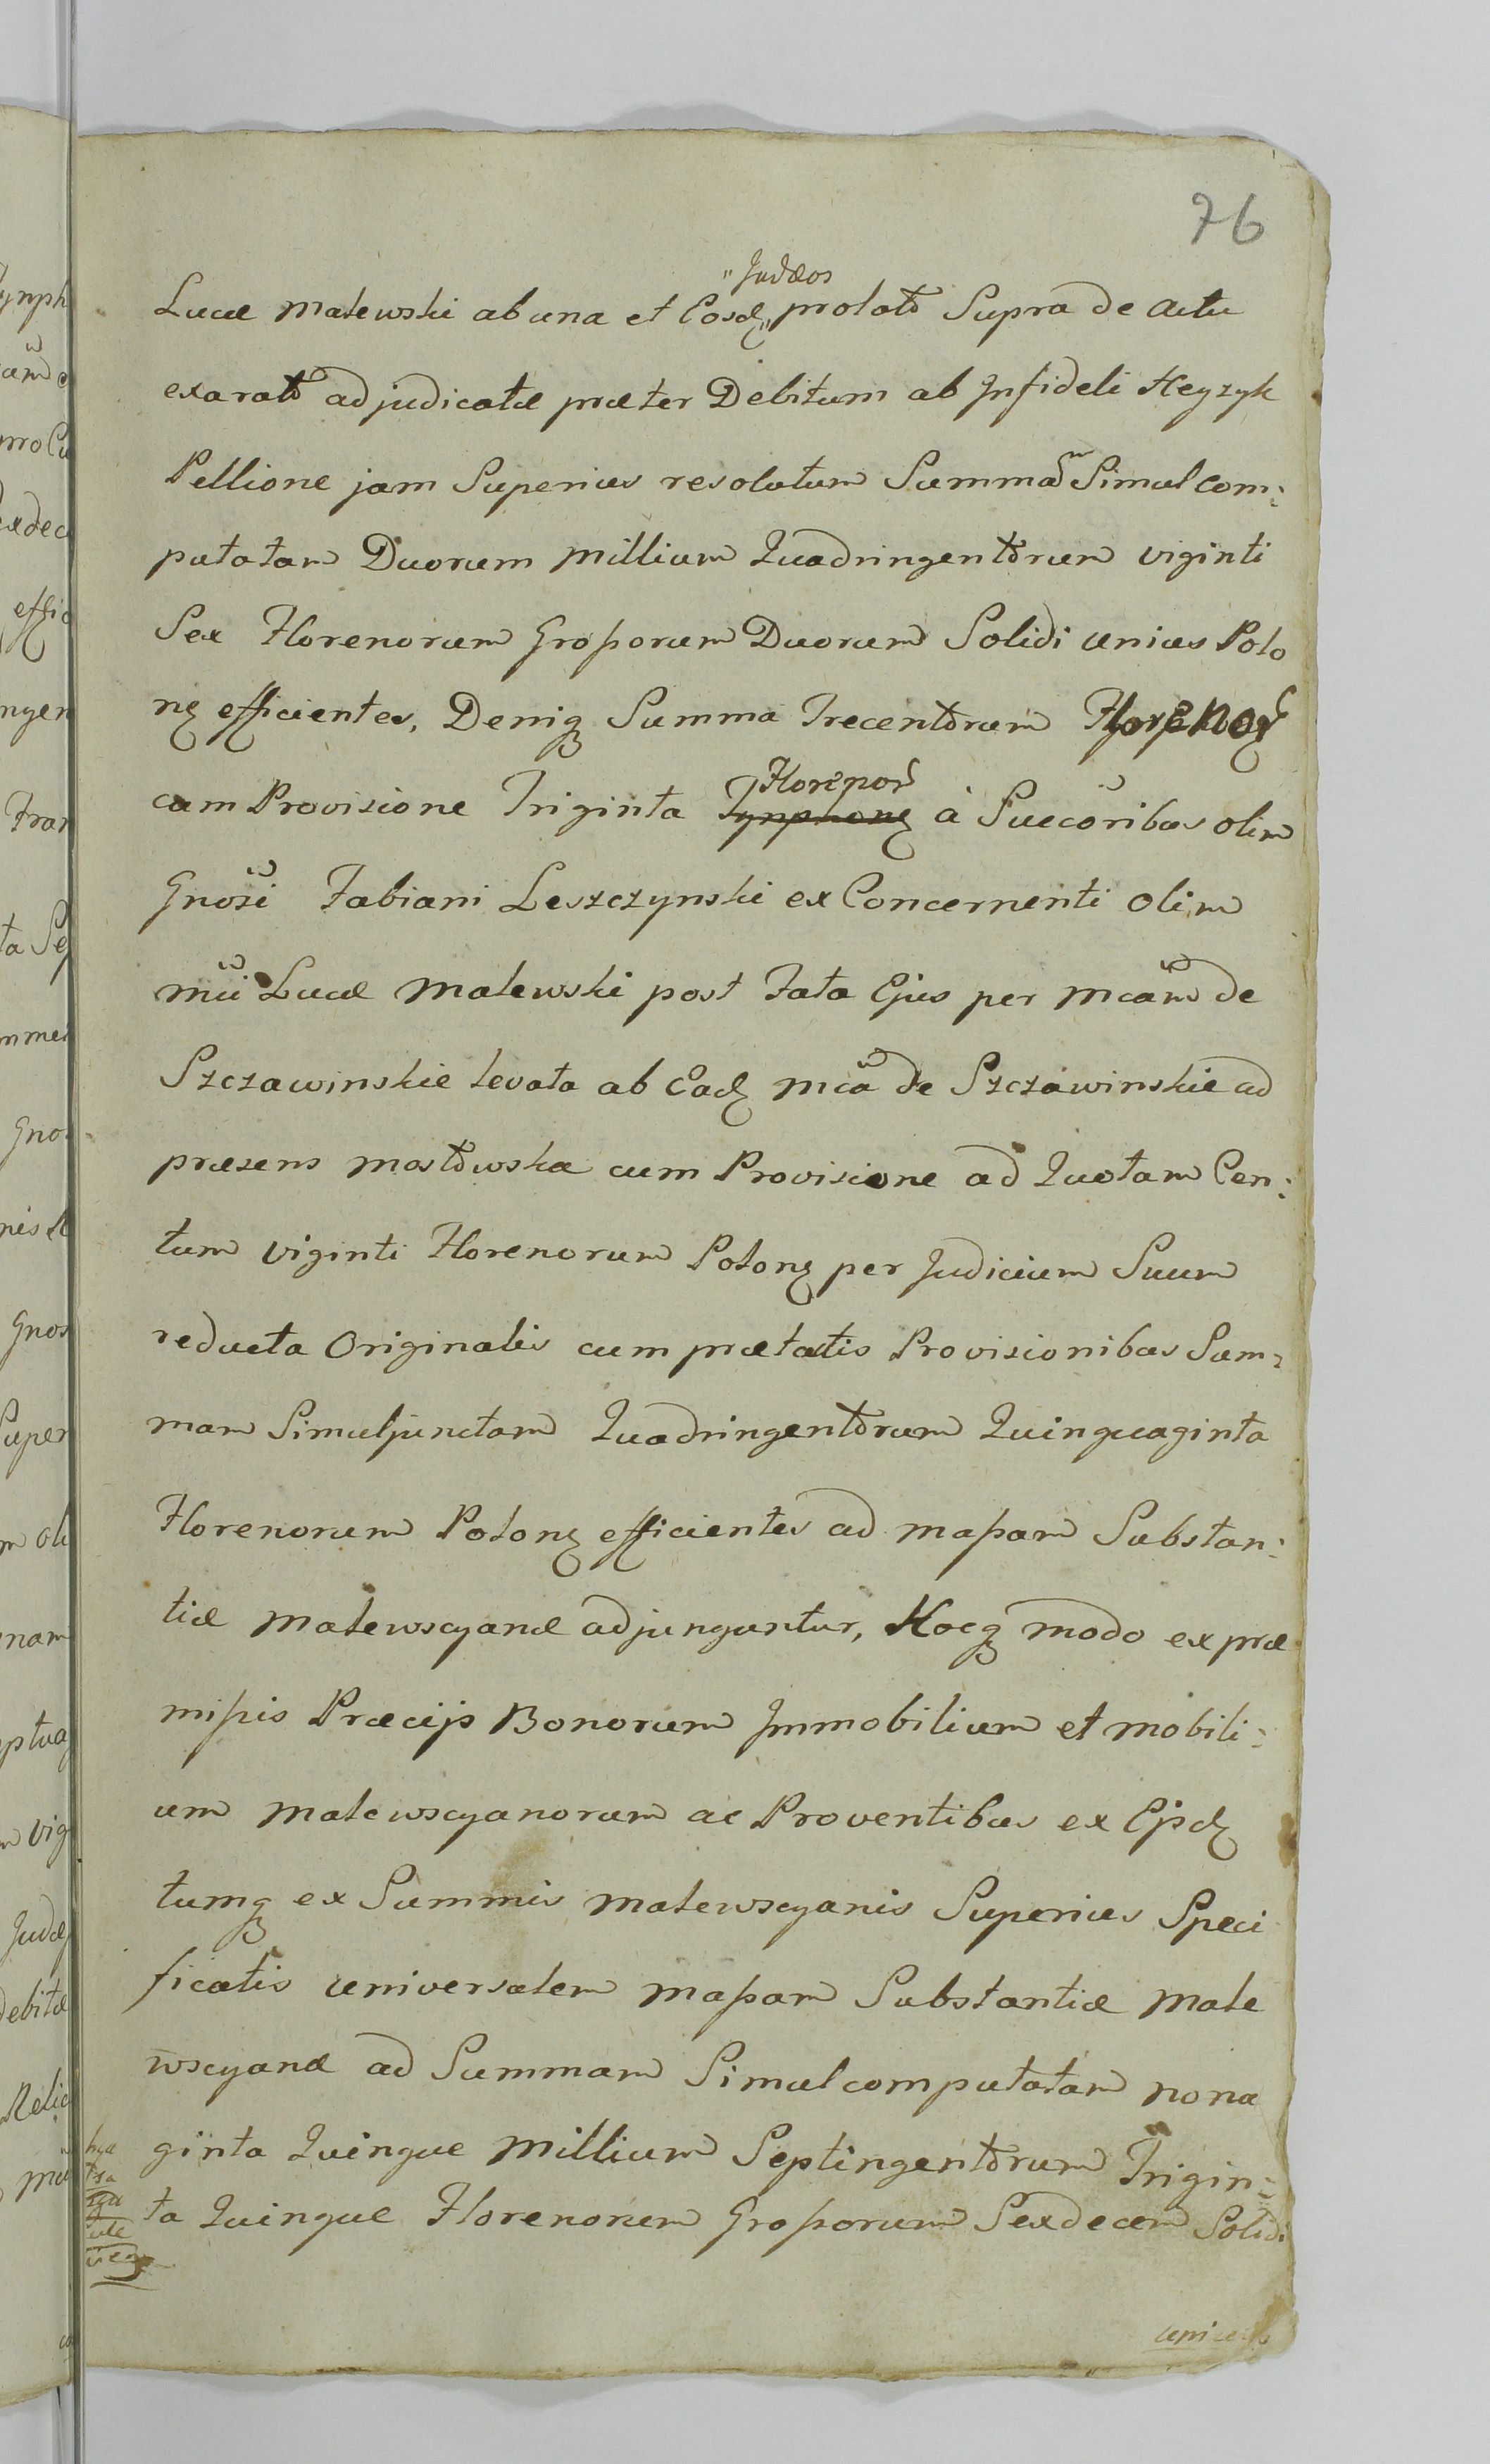 76
"Judæos
Lucæ Malewski ab una et Eosdꝫ" prolatō Supra de Actu
exaratō adjudicatæ præter Debitum ab Infideli Heyzyk
Pellione jam Superius resolutum Summam̃ Simul com:
putatam Duorum Millium Quadringentorum viginti
Sex Florenorum Groſsorum Duorum Solidi unius Polo
nꝫ efficientes, Deniqꝫ Summa Trecentorum Florenoꝝ
Florenoꝝ
cum Provisione Triginta Tynphonꝫ à Succōribus olim
Gnosi Fabiani Leszczynski ex Concernenti olim
Mci Lucæ Malewski post Fata Ejus per Mcam de
Szczawinskie levata ab Eadꝫ Mca de Szczawinskie ad
præsens Mostowska cum Provisione ad Quotam Cen:
tum viginti Florenorum Polonꝫ per Judicium Suum
reducta Originalis cum prætactis Provisionibus Sum:
mam Simul junctam Quadringentorum Quinquaginta
Florenorum Polonꝫ efficientes ad maſsam Substan:
tiæ Malewscyanæ adjunguntur, Hocqꝫ modo ex præ
miſsis Præcijs Bonorum Immobilium et mobili:
um Malewscyanorum ac Proventibus ex Ejsdꝫ
tumqꝫ ex Summis Malewscyanis Superius Speci
ficatis universalem Maſsam Substantiæ Male
wscyanæ ad Summam Simul computatam nona
ginta Quinque Millium Septingentorum Trigin:
ta Quinque Florenorum Groſsorum Sexdecem Solidi
unius